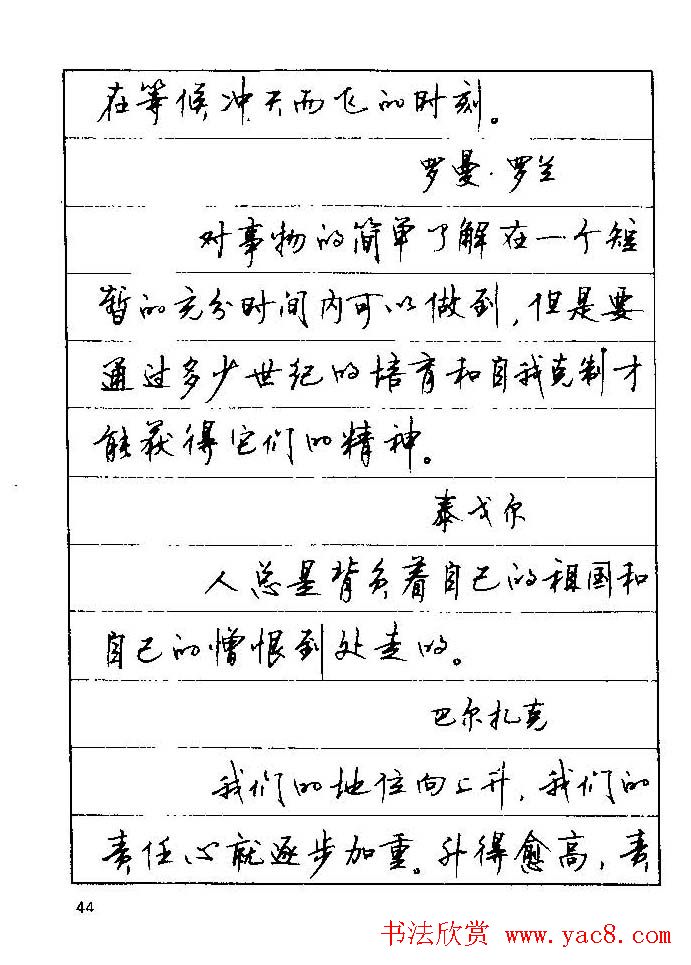 在等候冲天而飞的时刻。
罗曼·罗兰
对事物的简单了解在一个短
暂的充分时间内可以做到,但是要
通过多少世纪的培育和自我克制才
能获得它们的精神。
泰戈尔
人总是背负着自己的祖国和
自己的憎恨到处走的。
巴尔扎克
我们的地位向上升,我们的
责任心就逐步加重。升得愈高,责
44
书法欣赏 www.yac8.com